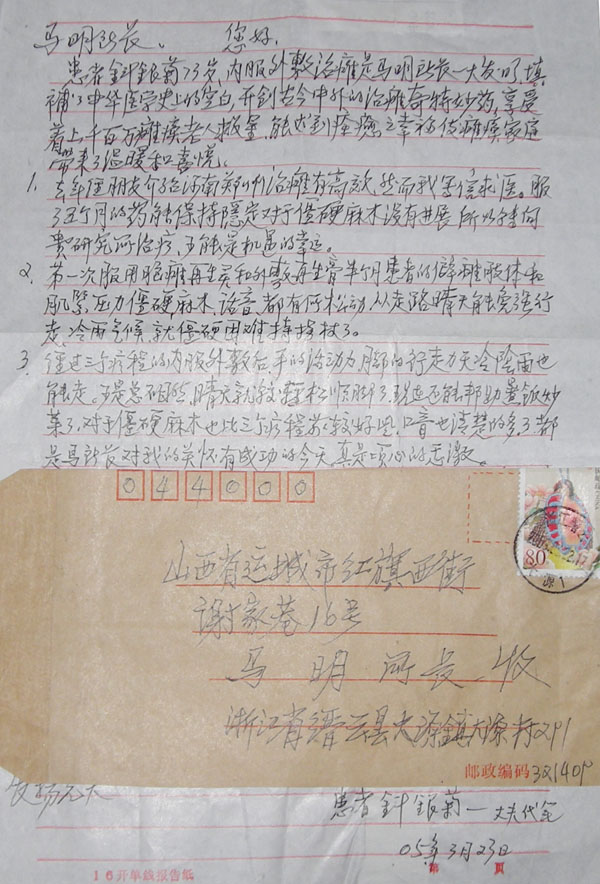 马明所长。 您好,
患者 银菊73岁,内服外敷治瘫是马明所长一大发明,填
补了中华医学史上的空白,开创古今中外的治瘫奇特妙药,享受
着上千百万瘫痪老人 能达到痊癒之幸福 瘫痪家庭
带来了温暖和喜悦。
1. 去年经朋友介绍河南郑州治瘫有高效,然而我写信求医。服
了三个月的药能保持隐定对于僵硬麻木没有进展所以转向
贵研究所治疗, 是机遇的幸运。
2. 第一次服用眼瘫再生灵和外敷再生膏半个月患者的僻瘫肢体和
肌紧压力僵硬麻木,话音都有所松动从走路晴天能勉强行
走,冷雨气候,就僵硬困难持拐杖了。
3. 经过三个疗程的内服外敷后手的活动力脚的行走力天冷阴雨也
能走。 晴天就较轻松顺脚了,现还能帮助煮饭炒
菜了,对于僵硬麻木也比三个疗程前较好些,口音也清楚的多了都
是马所长对我的关怀有成功的今天,真是衷心的感激。
044000
80
山西省运城市红旗西街
谢家巷16号
马明所长 收
浙江省缙云县大源镇大源村291
邮政编码 321401
患者 银菊—丈夫代笔
05年3月23日
16开单线报告纸 第 页